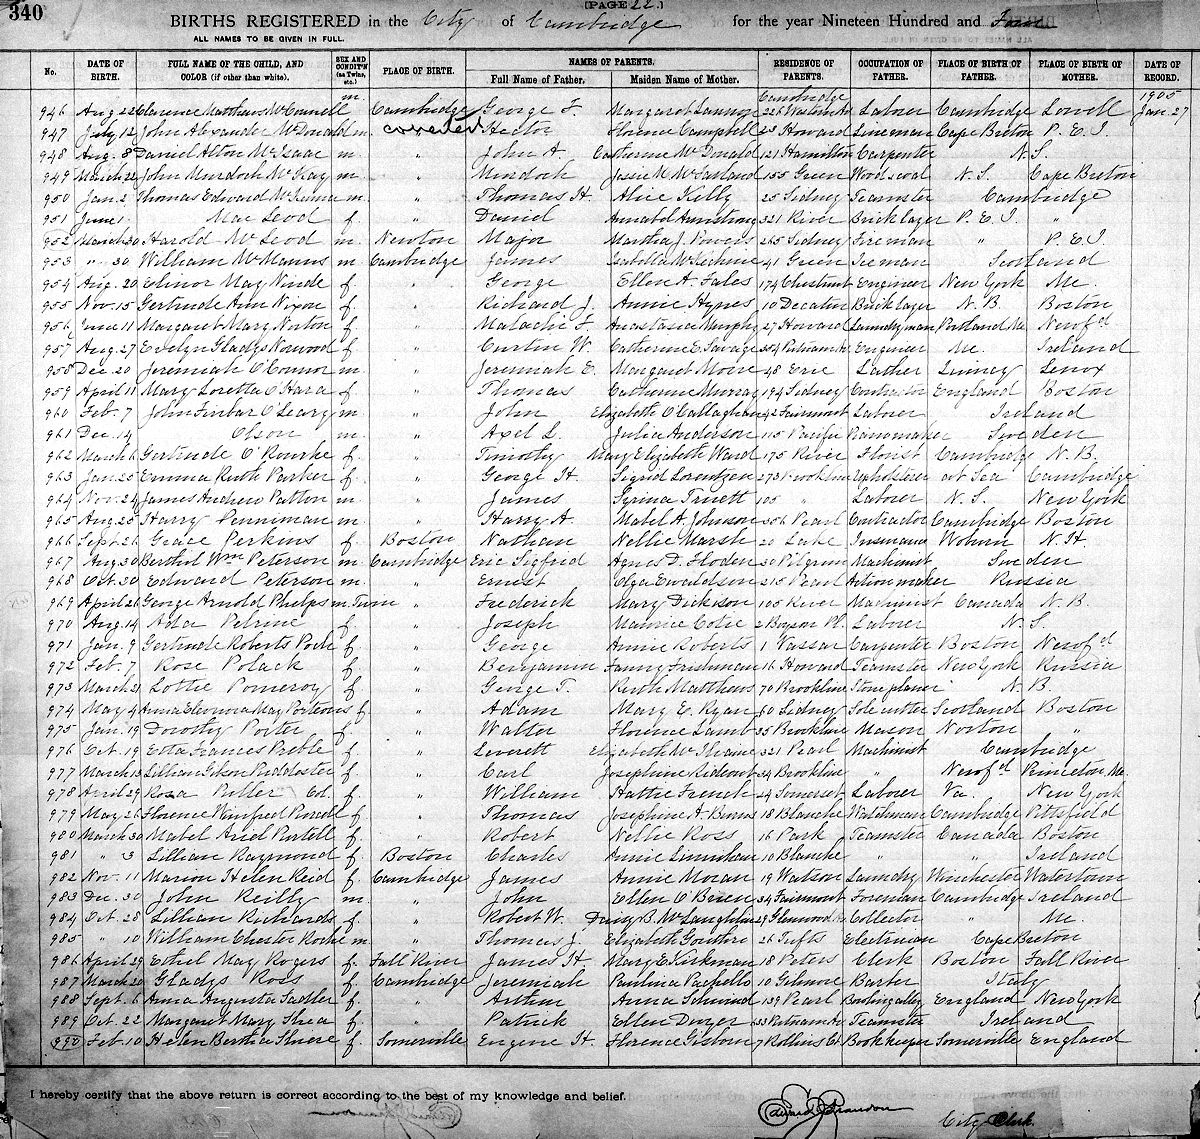 340
[PAGE 22.]
BIRTHS REGISTERED in the City of Cambridge for the year Nineteen Hundred and Four
ALL NAMES TO BE GIVEN IN FULL.
No. DATE OF BIRTH. FULL NAME OF THE CHILD, AND COLOR (if other than white). SEX AND CONDIT'N (as Twins, etc.) PLACE OF BIRTH. NAMES OF PARENTS. Full Name of Father. Maiden Name of Mother. RESIDENCE OF PARENTS. OCCUPATION OF FATHER. PLACE OF BIRTH OF FATHER. PLACE OF BIRTH OF MOTHER. DATE OF RECORD.
Cambridge 1905
946 Aug 22 Clarence Matthews McConnell m. Cambridge George F. Margaret 226 Laborer Cambridge Lowell Jan. 27
947 July 12 John Alexander McDonald m. corrected Hector Florence Campbell 23 Howard Lineman Cape Breton P. E. I.
948 Aug. 8 Daniel Alton McIsaac m. " John A. Catherine McDonald 121 Hamilton Carpenter N. S.
949 March 22 John Murdoch McKay m. " Murdoch Jessie M. McCasland 155 Green N. S. Cape Breton
950 Jan. 2 Thomas Edward m. " Thomas H. Alice Kelly 25 Sidney Teamster Cambridge
951 June 1 MacLeod f. " Daniel Annabel Armstrong 321 River Bricklayer P. E. I. "
952 March 30 Harold McLeod m. Newton Major Martha J. Powers 265 Sidney Fireman " P. E. I.
953 " 30 William McManus m. Cambridge James Isabella 41 Green Iceman Scotland
954 Aug. 20 Elinor May Ninde f. " George Ellen A. Fales 174 Chestnut Engineer New York Me.
955 Nov. 15 Gertrude Ann Nixon f. " Richard J. Annie Hynes 10 Decatur Bricklayer N. B. Boston
956 June 11 Margaret Mary Norton f. " Malachi F. Anastasia Murphy 27 Howard Laundryman Portland Me. Newf'd
957 Aug. 27 Evelyn Gladys Norwood f. " Curtin W. Catherine E. Savage 254 Putnam Av. Engineer Me. Ireland
958 Dec. 20 Jeremiah O'Connor m. " Jeremiah E. Margaret Moore 48 Erie Lather Quincy Lenox
959 April 11 Mary Loretta O'Hara f. " Thomas Catherine Murray 194 Sidney Contractor England Boston
960 Feb. 7 John Finbar O'Leary m. " John Elizabeth O'Callaghan 42 Fairmont Laborer Ireland
961 Dec. 14 Olson m. " Axel L. Julia Anderson 115 Pacific Pianomaker Sweden
962 March 6 Gertrude O'Rourke f. " Timothy Mary Elizabeth Ward 175 River Florist Cambridge N. B.
963 Jan. 25 Emma Ruth Parker f. " George H. Sigrid Lorentzen 273 Brookline Upholsterer at Sea Cambridge
964 Nov. 24 James Andrew Patton m. " James Syrina Truett 105 " Laborer N. S. New York
965 Aug. 25 Harry Penniman m. " Harry A. Mabel A. Johnson 356 Pearl Contractor Cambridge Boston
966 Sept. 26 Grace Perkins f. Boston Nathan Nellie Marsh 20 Lake Insurance Woburn N. H.
967 Aug. 30 Berthol Wm Peterson m. Cambridge Eric Sigfrid Agnes D. Floden 30 Pilgrim Machinist Sweden
968 Oct. 30 Edward Peterson m. " Ernest Olga Ewaldson 215 Pearl Action maker Russia
969 April 26 George Arnold Phelps m. Twin " Frederick Mary Dickison 105 River Machinist Canada N. B.
970 Aug. 14 Ada Petrine f. " Joseph Maurice Cotie 2 Laborer N. S.
971 Jan. 9 Gertrude Roberts Pock f. " George Annie Roberts 1 Vassar Carpenter Boston Newf'd
972 Feb. 7 Rose Polack f. " Benjamin Fanny Frishman 16 Howard Teamster New York Russia
973 March 21 Lottie Pomeroy f. " George T. Ruth Matthews 70 Brookline Stone planer N. B.
974 May 4 Anna Eleonora May Porteous f. " Adam Mary E. Ryan 80 Sidney Sole cutter Scotland Boston
975 Jan. 19 Dorothy Porter f. " Walter Florence Lamb 35 Brookline Mason Norton "
976 Oct. 19 Eota Frances Preble f. " Leverett Elizabeth 321 Pearl Machinist Cambridge
977 March 13 Lillian f. " Carl Josephine Rideout 54 Brookline " Newf'd Princeton, Me.
978 April 29 Rosa Puller Col. f. " William Hattie French 24 Somerset Laborer Va. New York
979 May 26 Florence Winifred Purcell f. " Thomas Josephine A. Burns 18 Blanche Watchman Cambridge Pittsfield
980 March 30 Mabel Ariel Purtell f. " Robert Nellie Ross 16 Park Teamster Canada Boston
981 " 3 Lillian Raymond f. Boston Charles Annie Linnihan 10 Blanche " " Ireland
982 Nov. 11 Marion Helen Reid f. Cambridge James Annie Moran 19 Watson Laundry Winchester Watertown
983 Dec. 30 John Reilly m. " John Ellen O'Brien 34 Fairmont Foreman Cambridge Ireland
984 Oct. 28 Lillian Richards f. " Robert W. Daisy B. McLaughlin 29 Glenwood Av Collector " Me.
985 " 10 William Chester Roche m. " Thomas J. Elizabeth Gouthro 26 Tufts Electrician Cape Breton
986 April 29 Ethel May Rogers f. Fall River James H. Mary E. Kirkman 18 Peters Clerk Boston Fall River
987 March 20 Gladys Ross f. Cambridge Jeremiah Paulina Pachello 10 Gilmore Barber Italy
988 Sept. 6 Anna Augusta Sadler f. " Arthur Anna Schwind 139 Pearl Bowling alley England New York
989 Oct. 22 Margaret Mary Shea f. " Patrick Ellen Dwyer 33 Putnam Av Teamster Ireland
990 Feb. 10 Helen Bertha f. Somerville Eugene H. Florence Gisborn 7 Rollins Ct. Bookkeeper Somerville England
I hereby certify that the above return is correct according to the best of my knowledge and belief.
Edward J. Brandon
City Clerk.